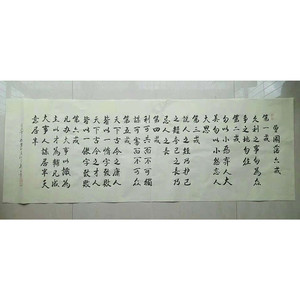 曾國藩六戒
第一戒
久利之事勿為众
争之地勿往
第二戒
勿以小惡弃人大
美勿以小怨忘人
大恩
第三戒
說人之短乃护己
之短夸己之长乃
忌人之长
第四戒
利可共而不可獨
謀可寡而不可众
第五戒
天下古今之庸人
皆以一惰字致敗
天下古今之才人
皆以一傲字致敗
第六戒
凡办大事以識為
主以才為輔凡成
大事人謀居半天
意居半